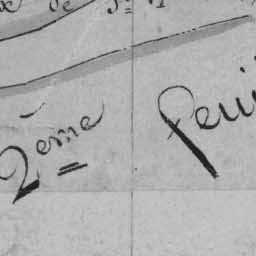 de St
2ème feui